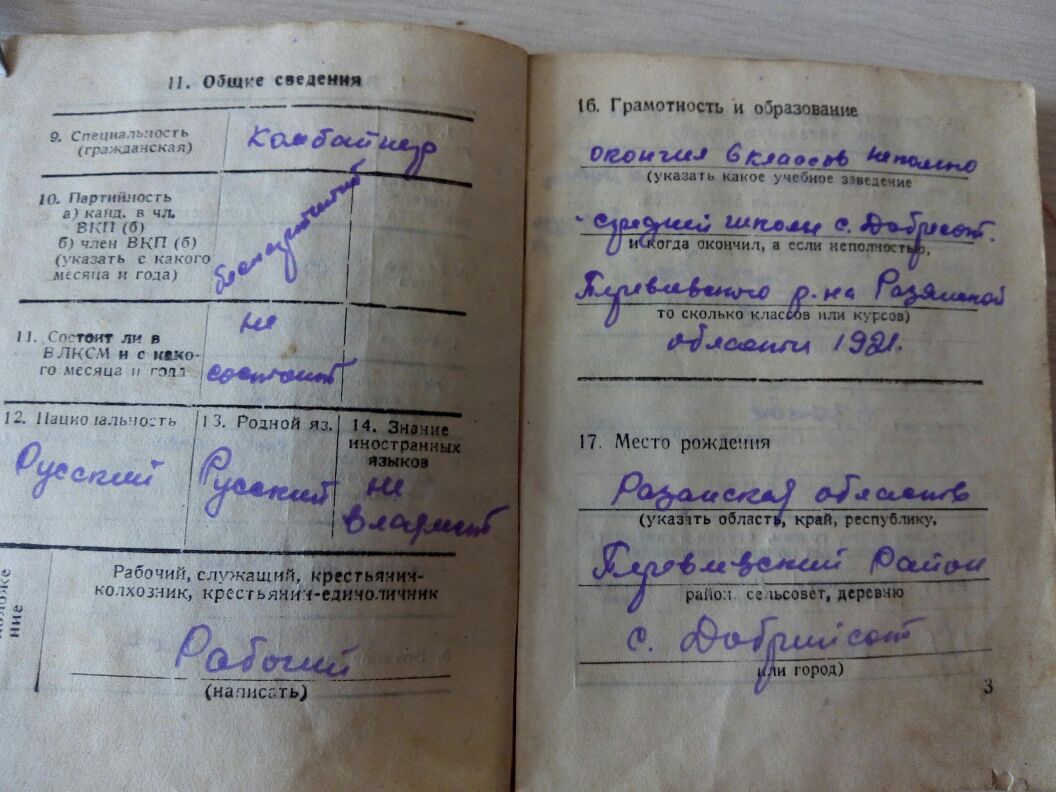 II. Общие сведения
9. Специальность
(гражданская)
Комбайнер
10. Партийность
а) канд. в чл.
ВКП (б)
б) член ВКП (б)
(указать с какого
месяца и года)
беспартийный
11. Состоит ли в
ВЛКСМ и с како-
го месяца и года
не
состоит
12. Национальность
Русский
13. Родной яз.
Русский
14. Знание
иностранных
языков
не
владеет
ние
Рабочий, служащий, крестьянин-
колхозник, крестьянин-единоличник
Рабочий
(написать)
16. Грамотность и образование
окончил 6 классов неполно
(указать какое учебное заведение
средней школы с.
и когда окончил, а если неполностью,
р-на Рязанской
то сколько классов или курсов)
области 1921.
17. Место рождения
область
(указать область, край, республику,
Район
район, сельсовет, деревню
с.
или город)
3